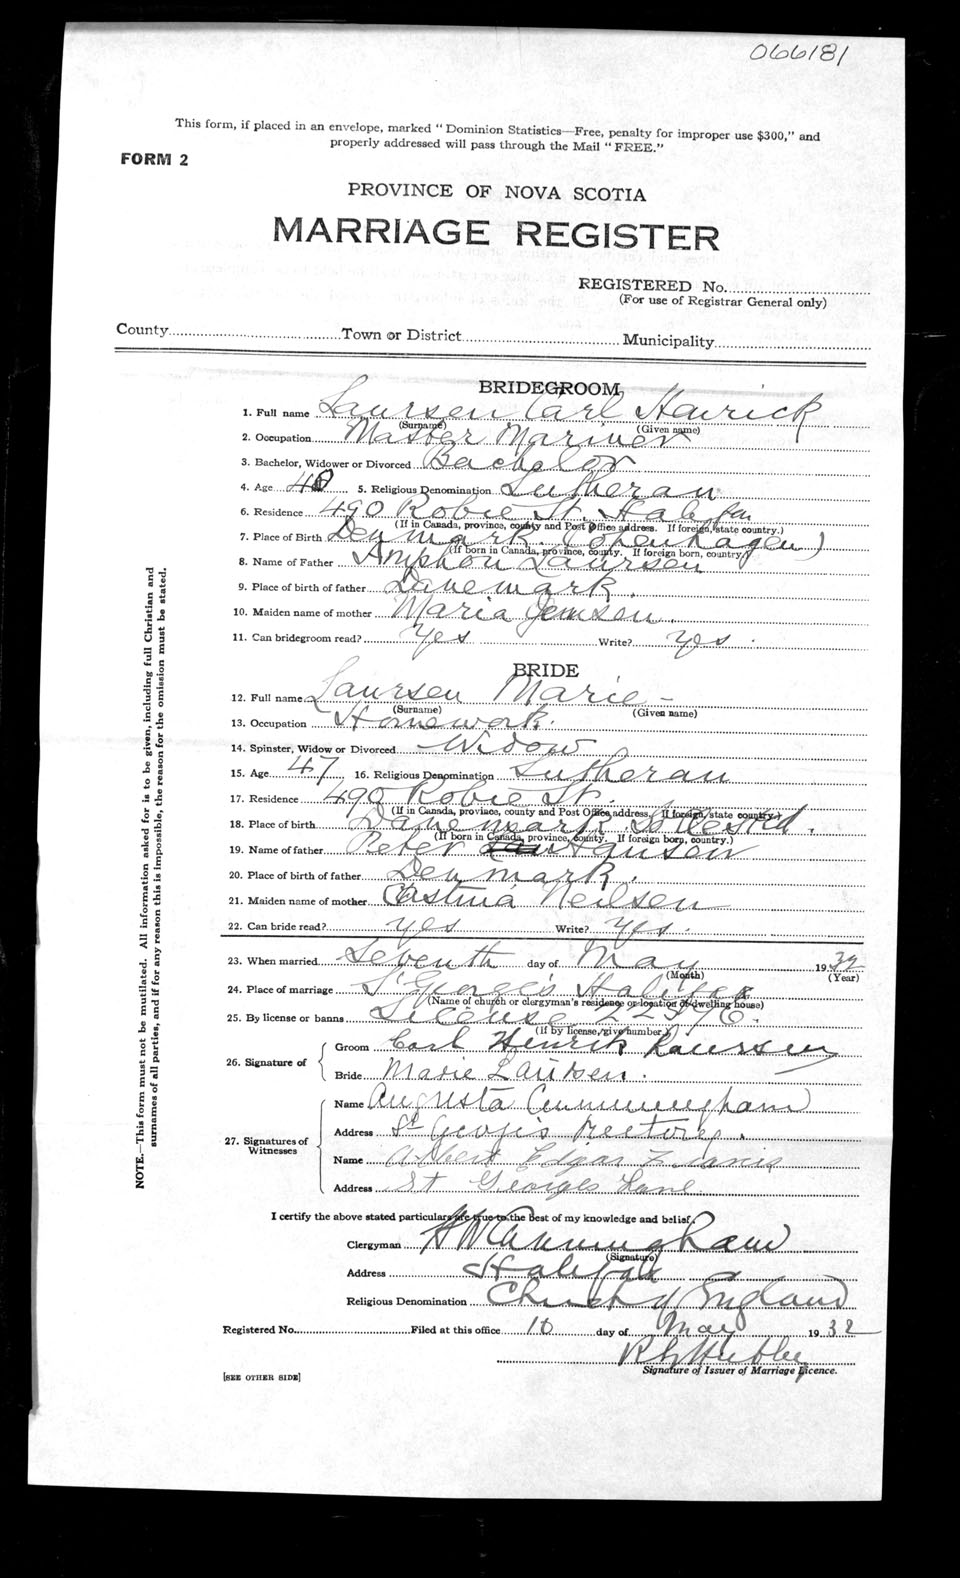 066181
This form, if placed in an envelope, marked "Dominion Statistics—Free, penalty for improper use $300," and
properly addressed will pass through the Mail "FREE."
FORM 2
PROVINCE OF NOVA SCOTIA
MARRIAGE REGISTER
REGISTERED No.
(For use of Registrar General only)
County Town or District Municipality
BRIDEGROOM
1. Full name Laursen Carl Henrick
(Surname) (Given name)
2. Occupation Master Mariner
3. Bachelor, Widower or Divorced Bachelor
4. Age 40 5. Religious Denomination Lutheran
6. Residence 490 Robie St. Halifax
(If in Canada, province, county and Post Office address. If foreign, state country.)
7. Place of Birth Denmark (Copenhagen)
(If born in Canada, province, county. If foreign born, country.)
8. Name of Father Laursen
9. Place of birth of father Danemark.
10. Maiden name of mother Maria Jemsen.
11. Can bridegroom read? Yes Write? Yes.
BRIDE
12. Full name Laursen Marie
(Surname) (Given name)
13. Occupation Homework.
14. Spinster, Widow or Divorced Widow
15. Age 47 16. Religious Denomination Lutheran
17. Residence 490 Robie St.
(If in Canada, province, county and Post Office address. If foreign, state country.)
18. Place of birth Danemark
(If born in Canada, province, county. If foreign born, country.)
19. Name of father Peter Hanson
20. Place of birth of father Denmark.
21. Maiden name of mother Neilsen
22. Can bride read? yes Write? Yes.
23. When married Seventh day of May 1932
(Month) (Year)
24. Place of marriage St George's Halifax
(Name of church or clergyman's residence or location of dwelling house)
25. By license or banns License 22596.
(If by license, give number)
26. Signature of
Groom Carl Henrik Laursen
Bride Marie Laursen.
27. Signatures of
Witnesses
Name Augusta Cunningham
Address St George's Rectory.
Name Albert Edgar
Address St Georges Lane
I certify the above stated particulars are true to the best of my knowledge and belief.
Clergyman H W Cunningham
(Signature)
Address Halifax
Religious Denomination Church of England
Registered No. Filed at this office 10 day of May 1932
Signature of Issuer of Marriage Licence.
[SEE OTHER SIDE]
NOTE.—This form must not be mutilated. All information asked for is to be given, including full Christian and
surnames of all parties, and if for any reason this is impossible, the reason for the omission must be stated.